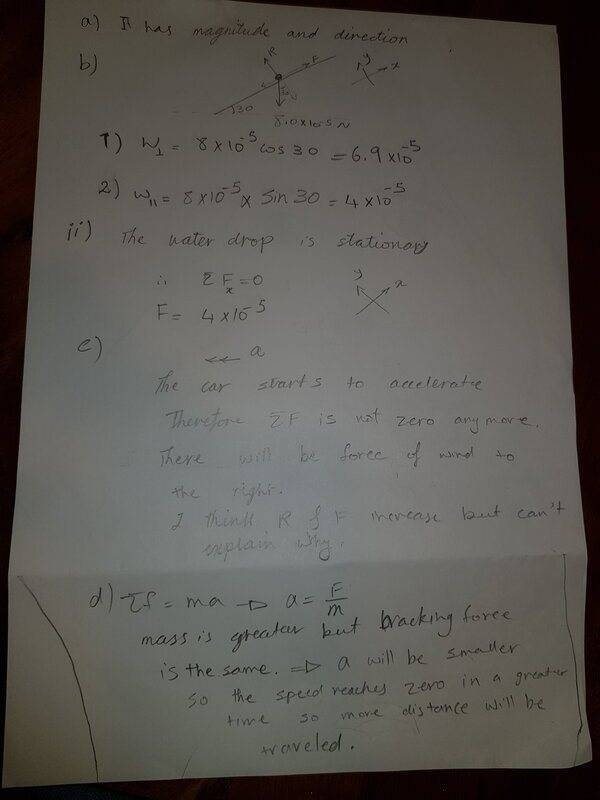 a) It has magnitude and direction
b)
R F y x
30
8.0x10-5 N
1) W⊥ = 8x10^-5 cos 30 = 6.9x10^-5
2) W|| = 8x10^-5 x Sin 30 = 4x10^-5
ii) The water drop is stationary
∴ Σ Fx = 0
y x
F = 4x10^-5
c)
a
The car starts to accelerate
Therefore ΣF is not zero any more.
There will be force of wind to
the right.
I think R & F increase but can't
explain why.
d) Σf = ma → a = F/m
mass is greater but bracking force
is the same. ⇒ a will be smaller
so the speed reaches zero in a greater
time so more distance will be
traveled.